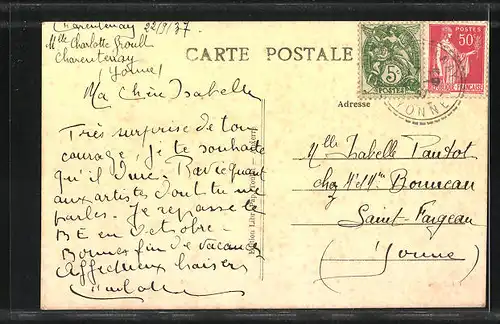 Charentenay 22/9/37
Mlle Charlotte
Charentenay
(Yonne)
CARTE POSTALE
Ma Chère Isabelle
Très surprise de ton
courage, je te souhaite
qu'il dure.
aux artistes dont tu me
parles. Je repasse le
BE en Octobre.
Bonnes fin de vacances
Affectueux baisers
Charlotte
Adresse
Mlle Isabelle Pautot
chez Mr et Mme Bonneau
Saint-Fargeau
(Yonne)
5c
POSTES
POSTES
50c
RÉPUBLIQUE FRANÇAISE
YONNE